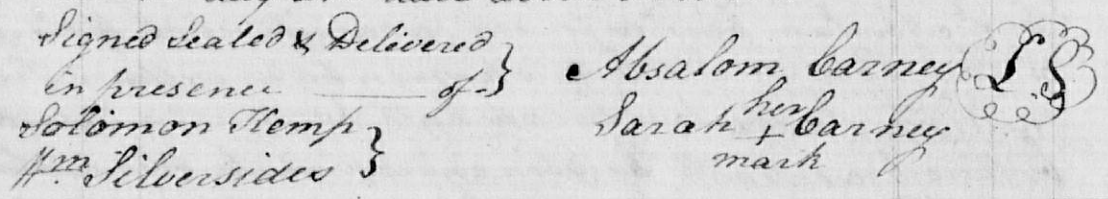 Signed Sealed & Delivered
in presence of
Solomon Kemp
Wm. Silversides
Absalom Carney LS
her
Sarah + Carney
mark